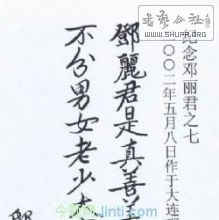 纪念邓丽君之七
二〇〇二年五月八日作于大连
鄧麗君是真善美
不分男女老少
书艺公社
WWW.SHUFA.ORG
今题网
Jinti.com